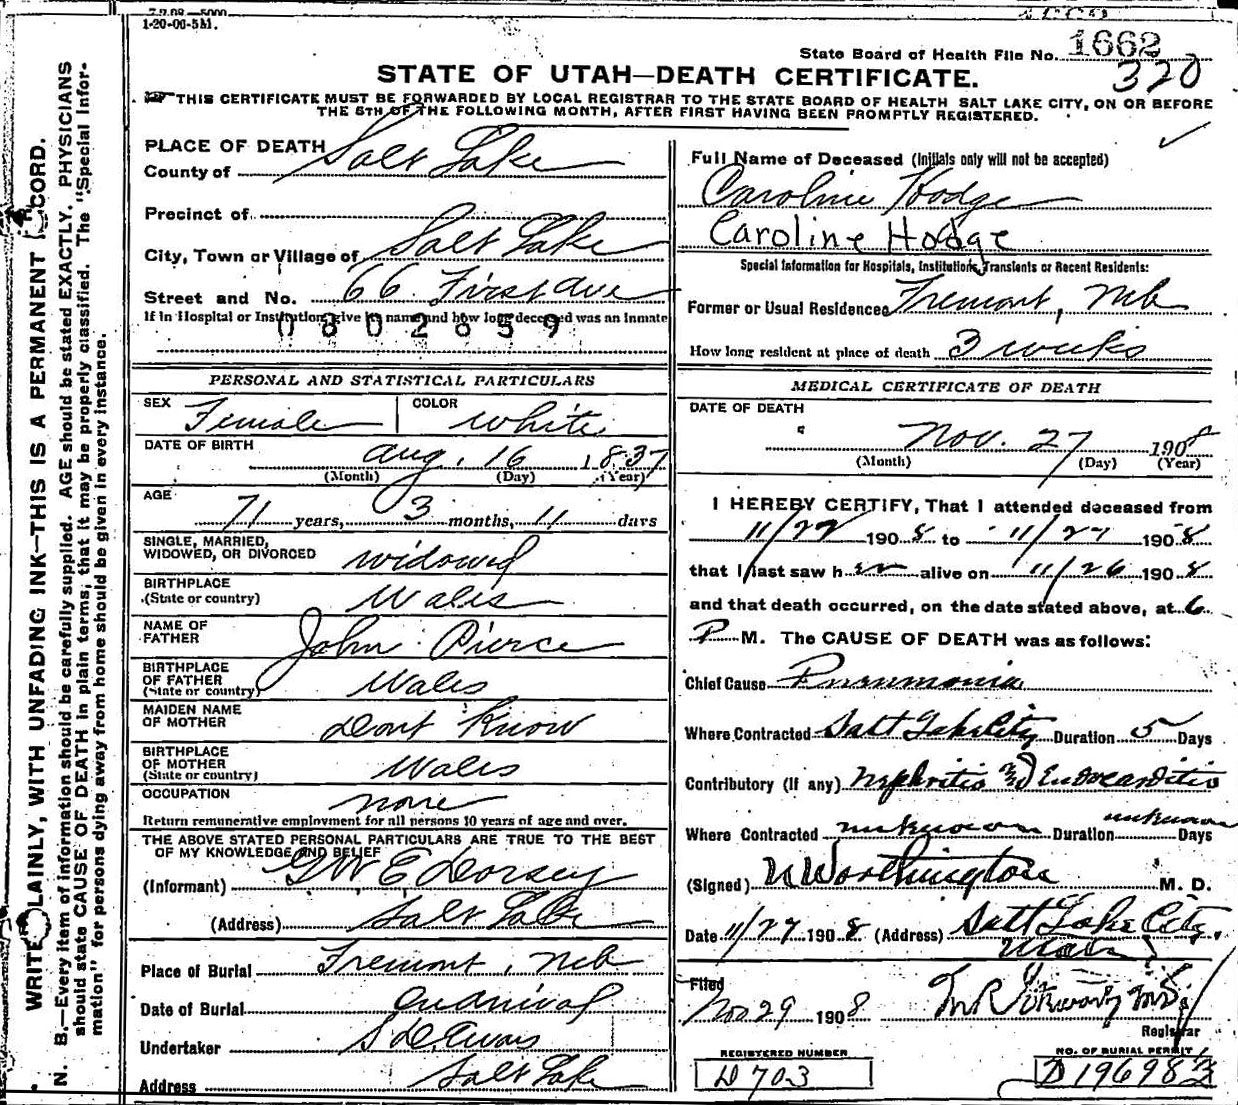 1-20-06-5M.
State Board of Health File No. 1662
320
STATE OF UTAH—DEATH CERTIFICATE.
THIS CERTIFICATE MUST BE FORWARDED BY LOCAL REGISTRAR TO THE STATE BOARD OF HEALTH SALT LAKE CITY, ON OR BEFORE
THE 5TH OF THE FOLLOWING MONTH, AFTER FIRST HAVING BEEN PROMPTLY REGISTERED.
WRITE PLAINLY, WITH UNFADING INK—THIS IS A PERMANENT RECORD.
N. B.—Every item of information should be carefully supplied. AGE should be stated EXACTLY. PHYSICIANS
should state CAUSE OF DEATH in plain terms, that it may be properly classified. The "Special Infor-
mation" for persons dying away from home should be given in every instance.
PLACE OF DEATH
County of Salt Lake
Precinct of
City, Town or Village of Salt Lake
Street and No. 66 First Ave
If in Hospital or Institution, give its name and how long deceased was an Inmate
0802659
PERSONAL AND STATISTICAL PARTICULARS
SEX Female COLOR White
DATE OF BIRTH Aug. 16 1837
(Month) (Day) (Year)
AGE 71 years, 3 months, 11 days
SINGLE, MARRIED,
WIDOWED, OR DIVORCED widowed
BIRTHPLACE
(State or country) Wales
NAME OF
FATHER John Pierce
BIRTHPLACE
OF FATHER
(State or country) Wales
MAIDEN NAME
OF MOTHER Dont Know
BIRTHPLACE
OF MOTHER
(State or country) Wales
OCCUPATION none
Return remunerative employment for all persons 10 years of age and over.
THE ABOVE STATED PERSONAL PARTICULARS ARE TRUE TO THE BEST
OF MY KNOWLEDGE AND BELIEF
(Informant) G W E Dorsey
(Address) Salt Lake
Place of Burial Fremont, Neb
Date of Burial On arrival
Undertaker S D Evans
Address Salt Lake
Full Name of Deceased (Initials only will not be accepted)
Caroline Hodge
Caroline Hodge
Special Information for Hospitals, Institutions, Transients or Recent Residents:
Former or Usual Residence Fremont, Neb
How long resident at place of death 3 weeks
MEDICAL CERTIFICATE OF DEATH
DATE OF DEATH
Nov. 27 1908
(Month) (Day) (Year)
I HEREBY CERTIFY, That I attended deceased from
11/22 1908 to 11/27 1908
that I last saw her alive on 11/26 1908
and that death occurred, on the date stated above, at 6
P M. The CAUSE OF DEATH was as follows:
Chief Cause Pneumonia
Where Contracted Salt Lake City Duration 5 Days
Contributory (if any) Nephritis and Endocarditis
Where Contracted unknown Duration unknown Days
(Signed) Worthington M. D.
Date 11/27 1908 (Address) Salt Lake City,
Utah
Filed
Nov 29 1908
Registrar
REGISTERED NUMBER
D 703
NO. OF BURIAL PERMIT
D 19698